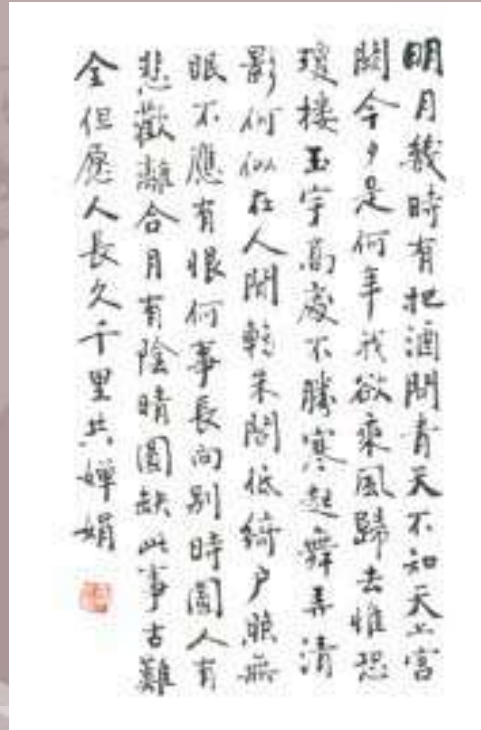 明月幾時有把酒問青天不知天上宮
闕今夕是何年我欲乘風歸去惟恐
瓊樓玉宇高處不勝寒起舞弄清
影何似在人間轉朱閣低綺户照無
眠不應有恨何事長向別時圓人有
悲歡離合月有陰晴圓缺此事古難
全但愿人長久千里共嬋娟